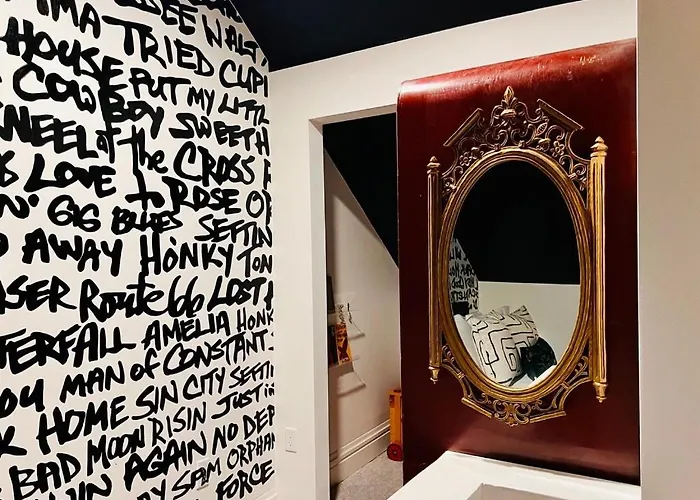 TRIED CUPI
HOUSE PUT MY LITTL
COWBOY SWEET H
KNEEL at the CROSS
LOVE to ROSE OF
N' GIG BLUES SETTIN
AWAY HONKY TON
ASER Route 66 LOST
TERFALL AMELIA HONK
MAN of CONSTANT
HOME SIN CITY SETTI
BAD MOON RISIN JUST
AGAIN NO DEP
SAM ORPHAN
FORCE